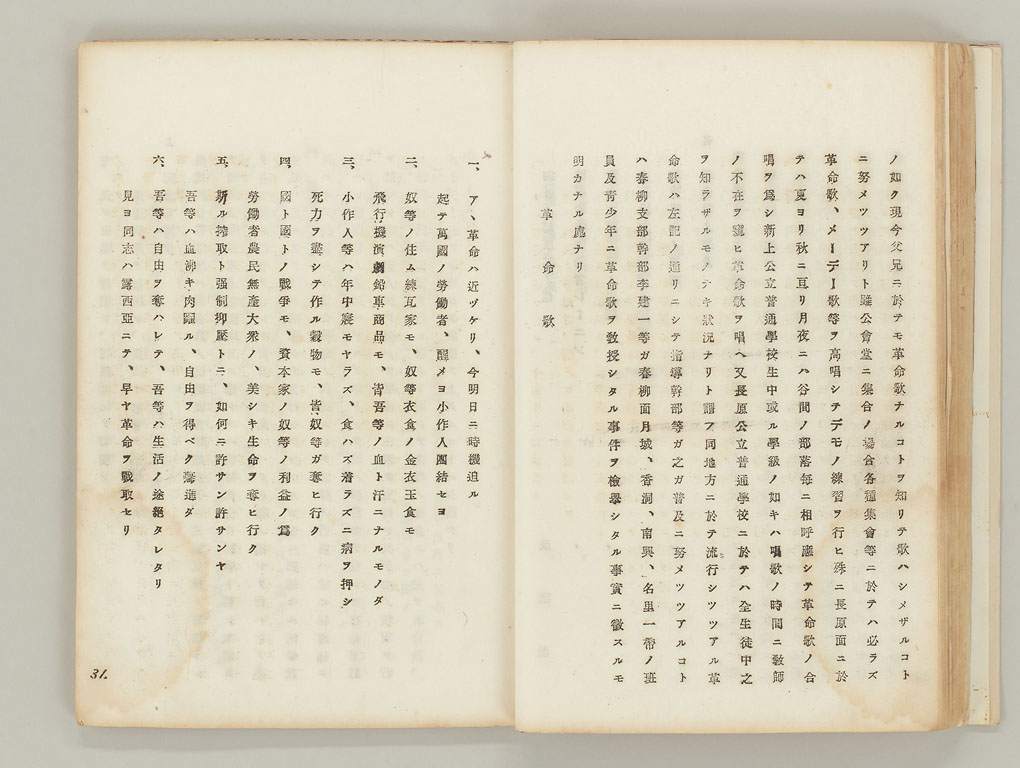 ノ如ク現今父兄ニ於テモ革命歌ナルコトヲ知リテ歌ハシメザルコト
ニ努メツツアリト雖公會堂ニ集合ノ場合各種集會等ニ於テハ必ラズ
革命歌、メーデー歌等ヲ高唱シテデモノ練習ヲ行ヒ殊ニ長原面ニ於
テハ夏ヨリ秋ニ亘リ月夜ニハ谷間ノ部落毎ニ相呼應シテ革命歌ノ合
唱ヲ爲シ新上公立普通學校生中或ル學級ノ如キハ唱歌ノ時間ニ敎師
ノ不在ヲ窺ヒ革命歌ヲ唱ヘ又長原公立普通學校ニ於テハ全生徒中之
ヲ知ラザルモノナキ狀況ナリト謂フ同地方ニ於テ流行シツツアル革
命歌ハ左記ノ通リニシテ指導幹部等ガ之ガ普及ニ努メツツアルコト
ハ春柳支部幹部李建一等ガ春柳面月城、香洞、南興、名里一帶ノ班
員及靑少年ニ革命歌ヲ敎授シタル事件ヲ檢擧シタル事實ニ徵スルモ
明カナル處ナリ
革命歌
一、ア、革命ハ近ヅケリ、今明日ニ時機迫ル
起テ萬國ノ勞働者、醒メヨ小作人團結セヨ
二、奴等ノ住ム練瓦家モ、奴等衣食ノ金衣玉食モ
飛行機演劇鉛車商品モ、皆吾等ノ血ト汗ニナルモノダ
三、小作人等ハ年中寢モヤラズ、食ハズ着ラズニ病ヲ押シ
死力ヲ盡シテ作ル穀物モ、皆奴等ガ奪ヒ行ク
四、國ト國トノ戰爭モ、資本家ノ奴等ノ利益ノ爲
勞働者農民無產大衆ノ、美シキ生命ヲ奪ヒ行ク
五、斯ル搾取ト强制抑壓トニ、如何ニ許サン許サンヤ
吾等ハ血沸キ肉躍ル、自由ヲ得ベク奪進ダ
六、吾等ハ自由ヲ奪ハレテ、吾等ハ生活ノ途絕タレタリ
見ヨ同志ハ露西亞ニテ、早ヤ革命ヲ戰取セリ
31.